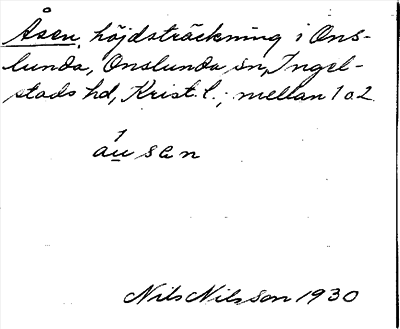 Åsen, höjdsträckning i Ons-
lunda, Onslunda sn, Ingel-
stads hd, Krist. l.; mellan 1 o 2.
1
au san
Nils Nilsson 1930